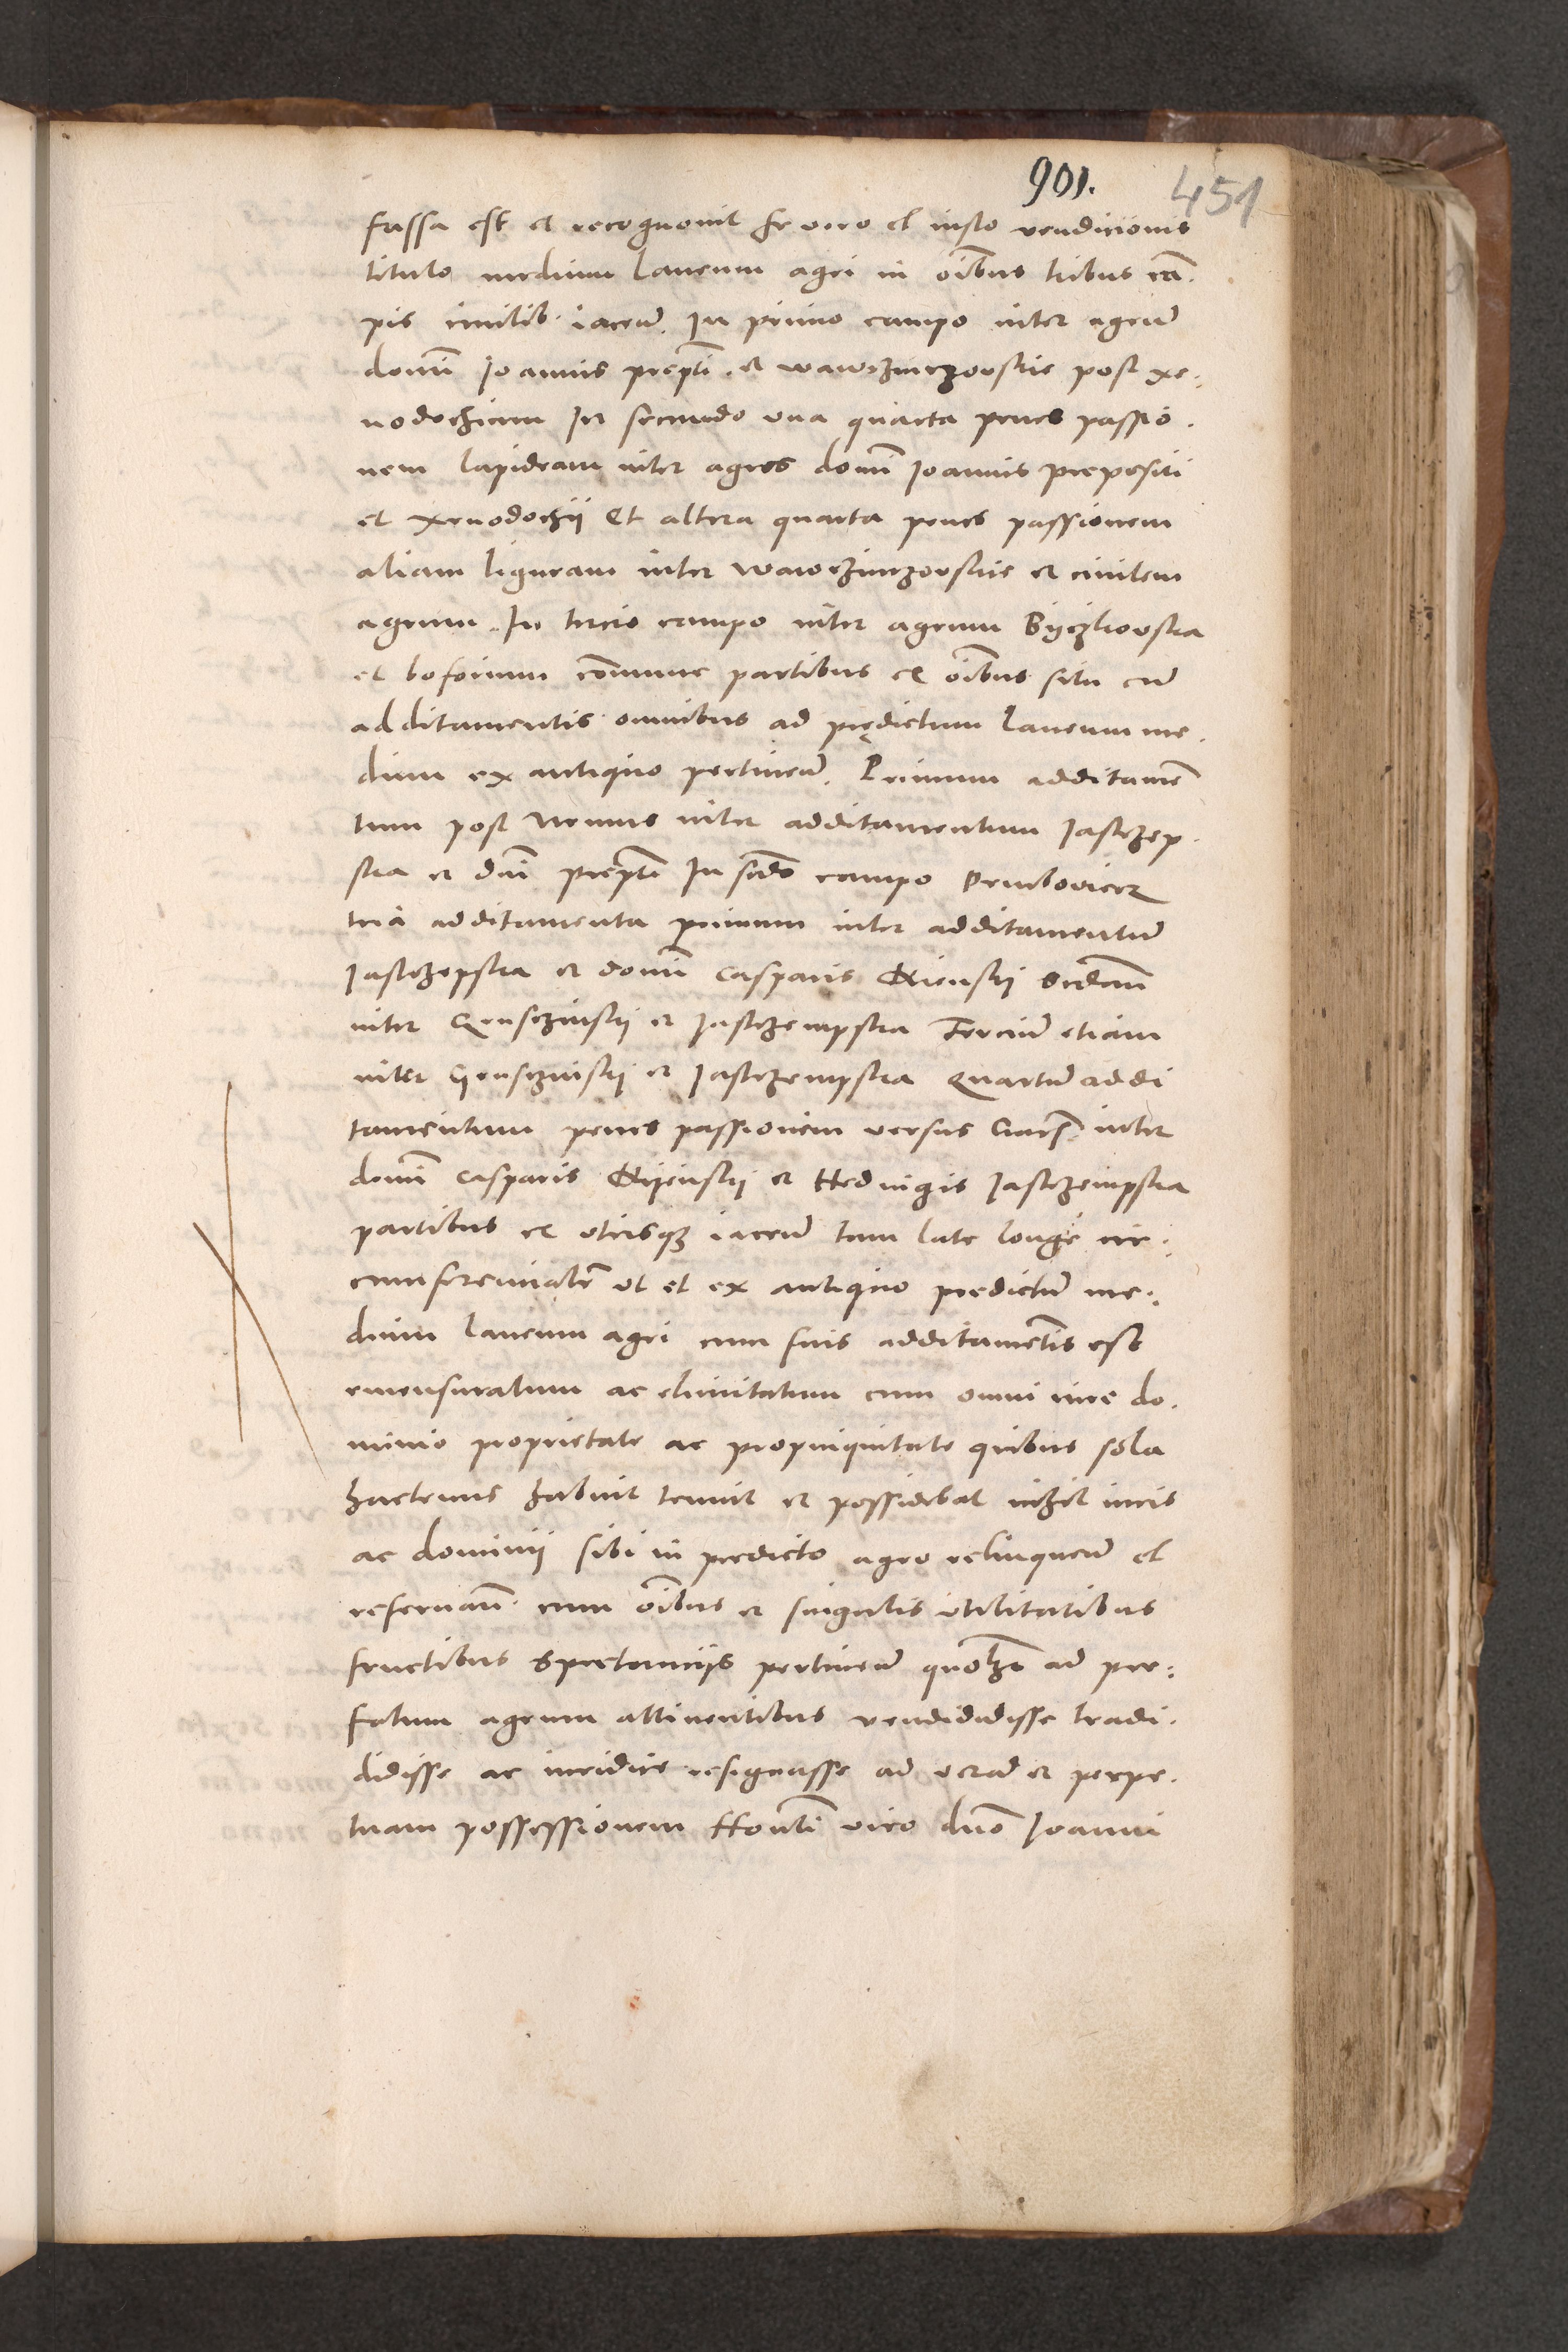 901.
451
fassa est et recognovit se vero et iusto vendicionis
titulo medium laneum agri in oĩbus tribus cã.
pis civilib. iaceñ. In primo campo inter agrũ
domĩ Joannis prepti. et wawrzinczowskie post xe:
nodochium In secundo una quarta penes passio.
nem lapideam inter agros domĩ Joannis prepositi
et xenodochii Et altera quarta penes passionem
aliam ligneam inter wawrzinczowskie et civilem
agrum. In tercio campo inter agrum
et boforium cõmune partibus ex oĩbus sitũ cũ
additamentis omnibus ad prędictum laneum me.
dium ex antiquo pertineñ. Primum additamẽ
tum post nemus inter additamentum Jastrzep.
ska et dñi prepti In scdo campo
tria additamenta primum inter additamentũ
Jastrzepska et domĩ Casparis Secdum
inter et Jastrzempska Tercium etiam
inter et Jastrzempska Quartũ addi
tamentum penes passionem versus inter
domĩ Casparis et Hedvigis Jastrzempska
partibus ex utrisque iaceñ tam late longe cir:
cumferencialr̃ ut et ex antiquo predictũ me:
dium laneum agri cum suis additamẽtis est
emensuratum ac elimitatum cum omni iure do.
minio proprietate ac propinquitate quibus sola
hactenus habuit tenuit et possidebat nihil iuris
ac dominii sibi in predicto agro relinqueñ et
reservañ. cum oĩbus et singulis utilitatibus
fructibus pertineñ ad pre:
fatum agrum attinentibus vendidisse tradi.
didisse ac iuridice resignasse ad verã et perpe.
tuam possessionem Honti viro dño Joanni